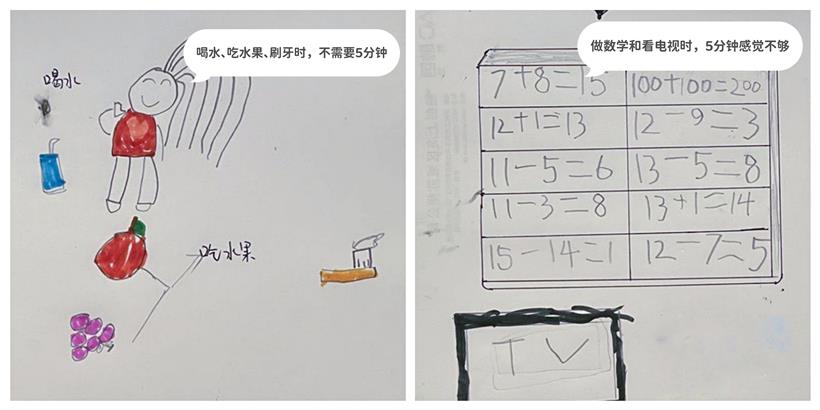 喝水、吃水果、刷牙时，不需要5分钟
喝水
吃水果
做数学和看电视时，5分钟感觉不够
7+8=15 100+100=200
12+1=13 12-9=3
11-5=6 13-5=8
11-3=8 13+1=14
15-14=1 12-7=5
TV